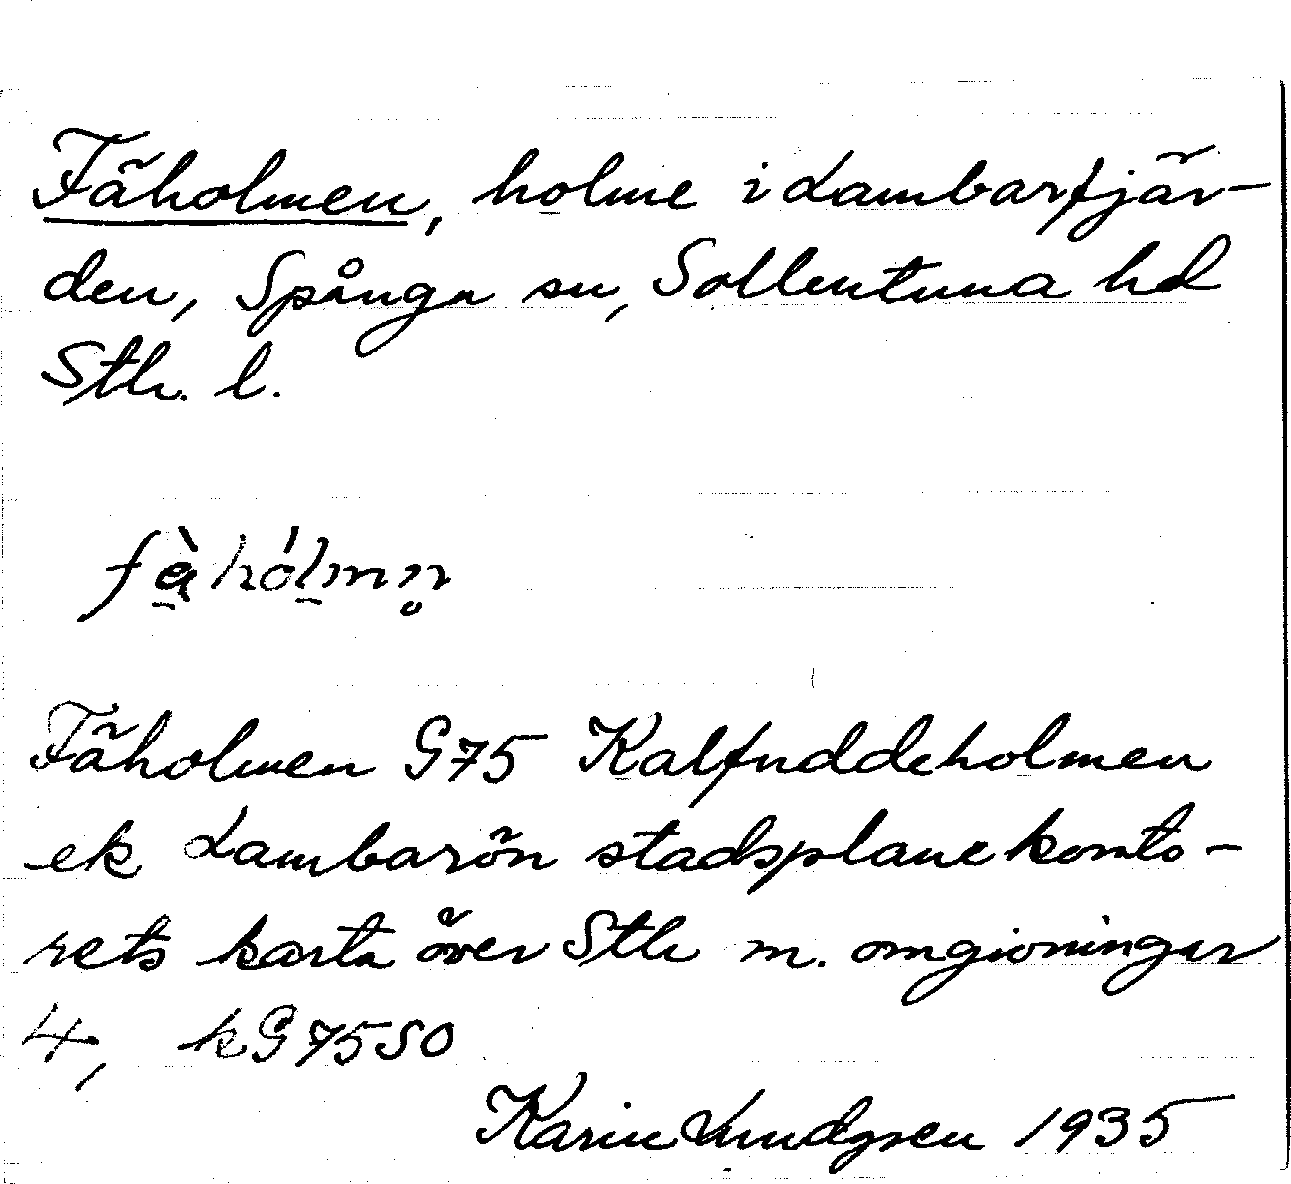 Fäholmen, holme i Lambarfjär-
den, Spånga sn, Sollentuna hd
Sth. l.
fæ̀hólmn̥
Fäholmen G75 Kalfuddeholmen
ek Lambarön stadsplanekonto-
rets karta över Sth m. omgivningar
4, kG75SO
Karin Lundgren 1935